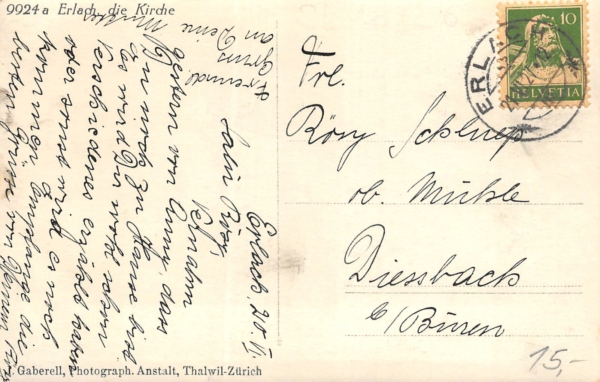 9924 a Erlach, die Kirche
Erlach, 20. VI.
Salü Rösy,
Vernahm
gestern von Anny, dass
Du noch zu Hause bist
Es wird Dir wohl schon
verschiedenes erzählt haben
oder sonst wird es noch
kommen. Empfange die
besten Grüsse von
Freund
Gruss
an Deine Mutter
Frl.
Rösy Schlup
ob. Mühle
Diessbach
b/Büren
ERLACH
10
HELVETIA
15,-
J. Gaberell, Photograph. Anstalt, Thalwil-Zürich